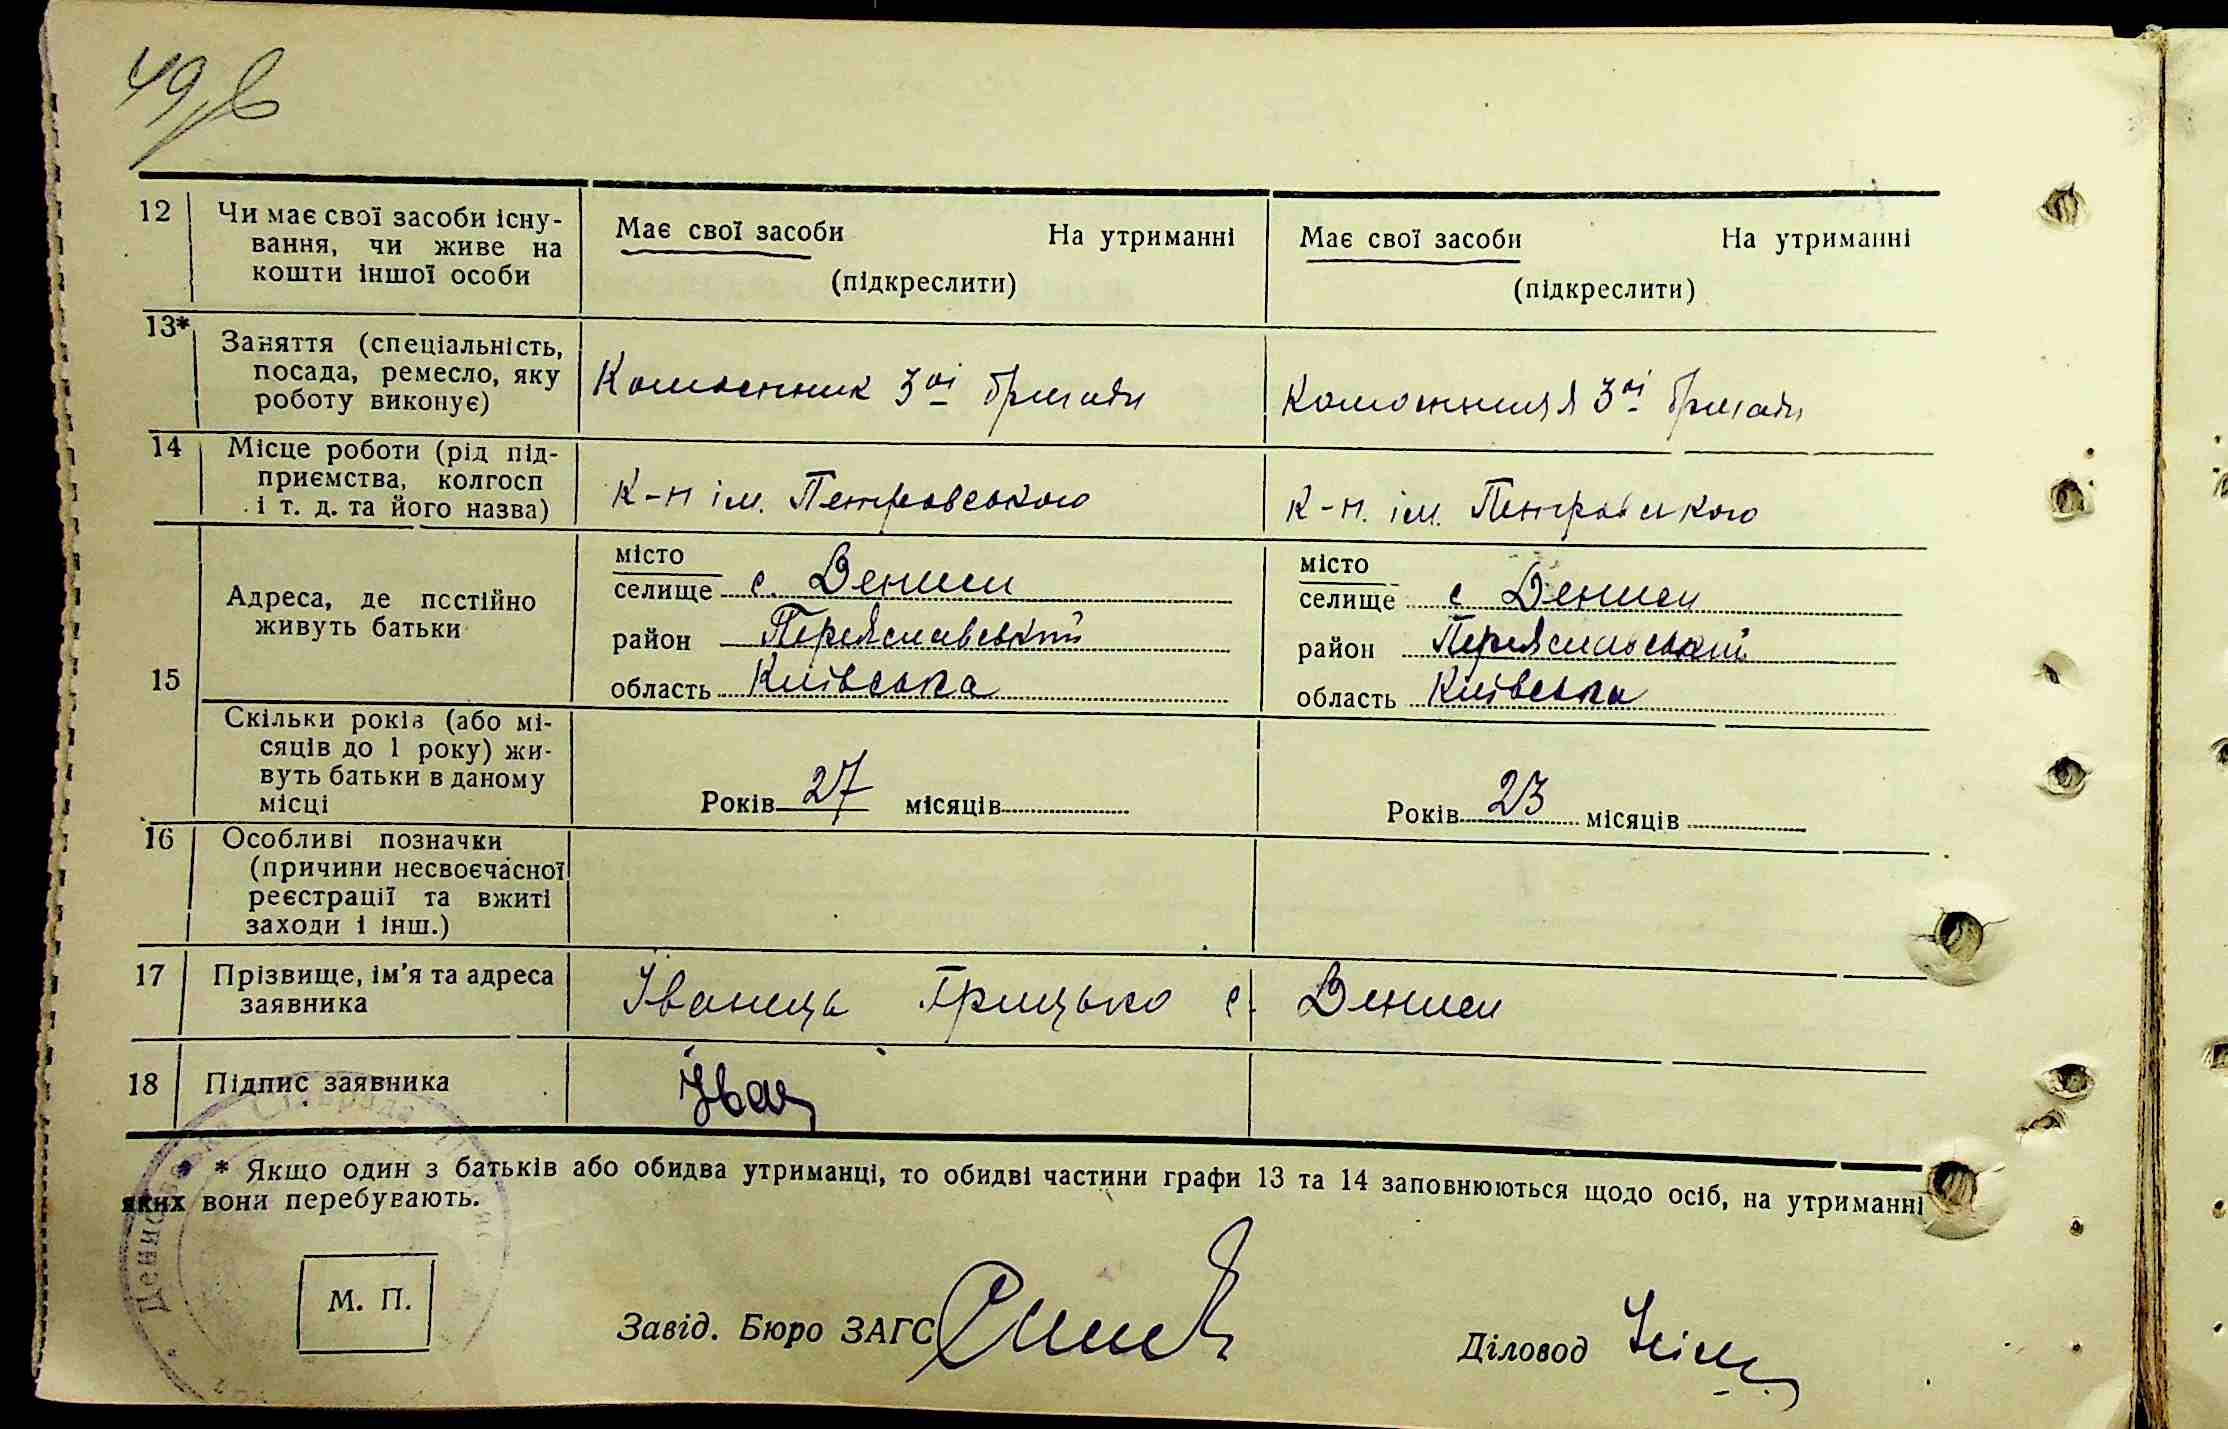 49 в
12 Чи має свої засоби існу-
вання, чи живе на
кошти іншої особи
Має свої засоби На утриманні
(підкреслити)
Має свої засоби На утриманні
(підкреслити)
13* Заняття (спеціальність,
посада, ремесло, яку
роботу виконує)
Колгоспник 3ої бригади
Колгоспниця 3ої бригади
14 Місце роботи (рід під-
приємства, колгосп
і т. д. та його назва)
К-п ім. Петровського
К-п. ім. Петровського
15 Адреса, де постійно
живуть батьки
місто
селище с. Дениси
район Переяславський
область Київська
місто
селище с Дениси
район Переяславський
область Київська
Скільки років (або мі-
сяців до 1 року) жи-
вуть батьки в даному
місці
Років 27 місяців
Років 23 місяців
16 Особливі позначки
(причини несвоєчасної
реєстрації та вжиті
заходи і інш.)
17 Прізвище, ім'я та адреса
заявника
Іванець Грицько с. Дениси
18 Підпис заявника
Іван
* Якщо один з батьків або обидва утриманці, то обидві частини графи 13 та 14 заповнюються щодо осіб, на утриманні
яких вони перебувають.
М. П.
Завід. Бюро ЗАГС
Діловод